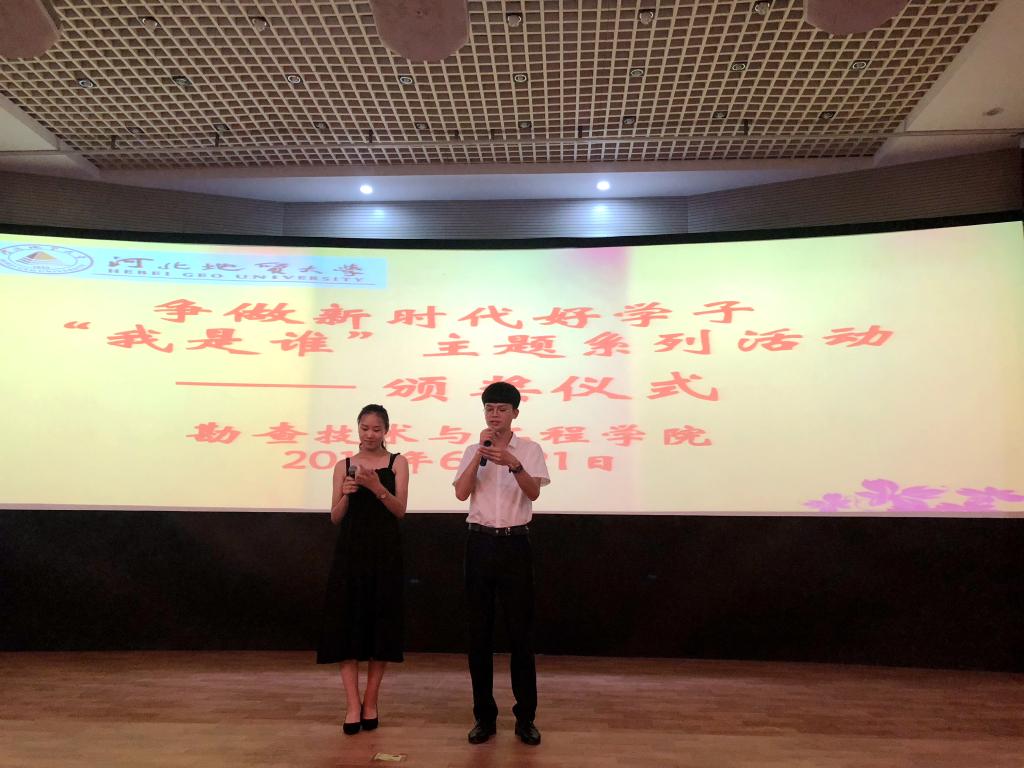 河北地质大学
HEBEI GEO UNIVERSITY
争做新时代好学子
“我是谁”主题系列活动
——颁奖仪式
勘查技术与工程学院